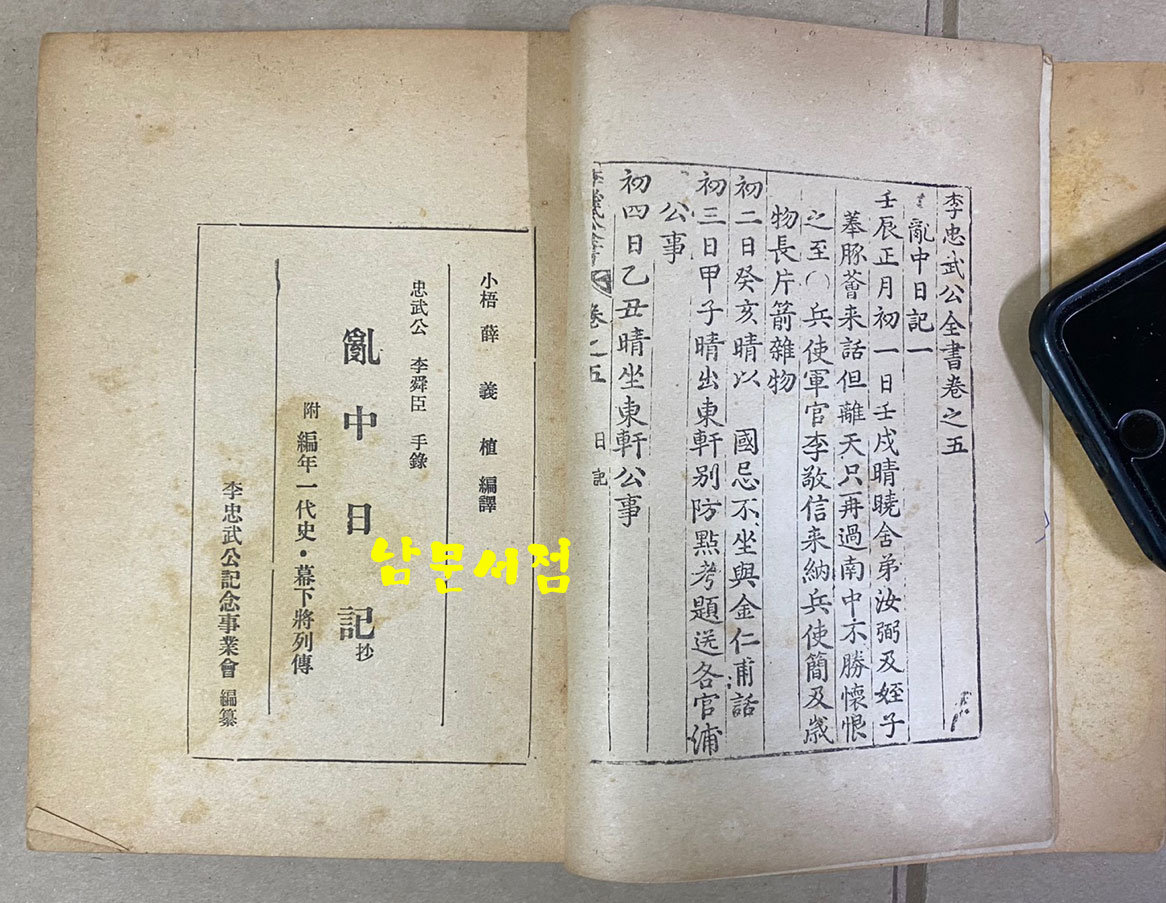 李忠武公全書卷之五
亂中日記一
壬辰正月初一日壬戌晴曉舍弟汝弼及姪子
菶豚薈来話但離天只再過南中不勝懷恨
之至〇兵使軍官李敬信来納兵使簡及歲
物長片箭雜物
初二日癸亥晴以 國忌不坐與金仁甫話
初三日甲子晴出東軒别防點考題送各官浦
公事
初四日乙丑晴坐東軒公事
卷之五 日記
小梧 薛義植 編譯
忠武公 李舜臣 手錄
亂中日記抄
附 編年一代史・幕下將列傳
李忠武公記念事業會 編纂
남문서점